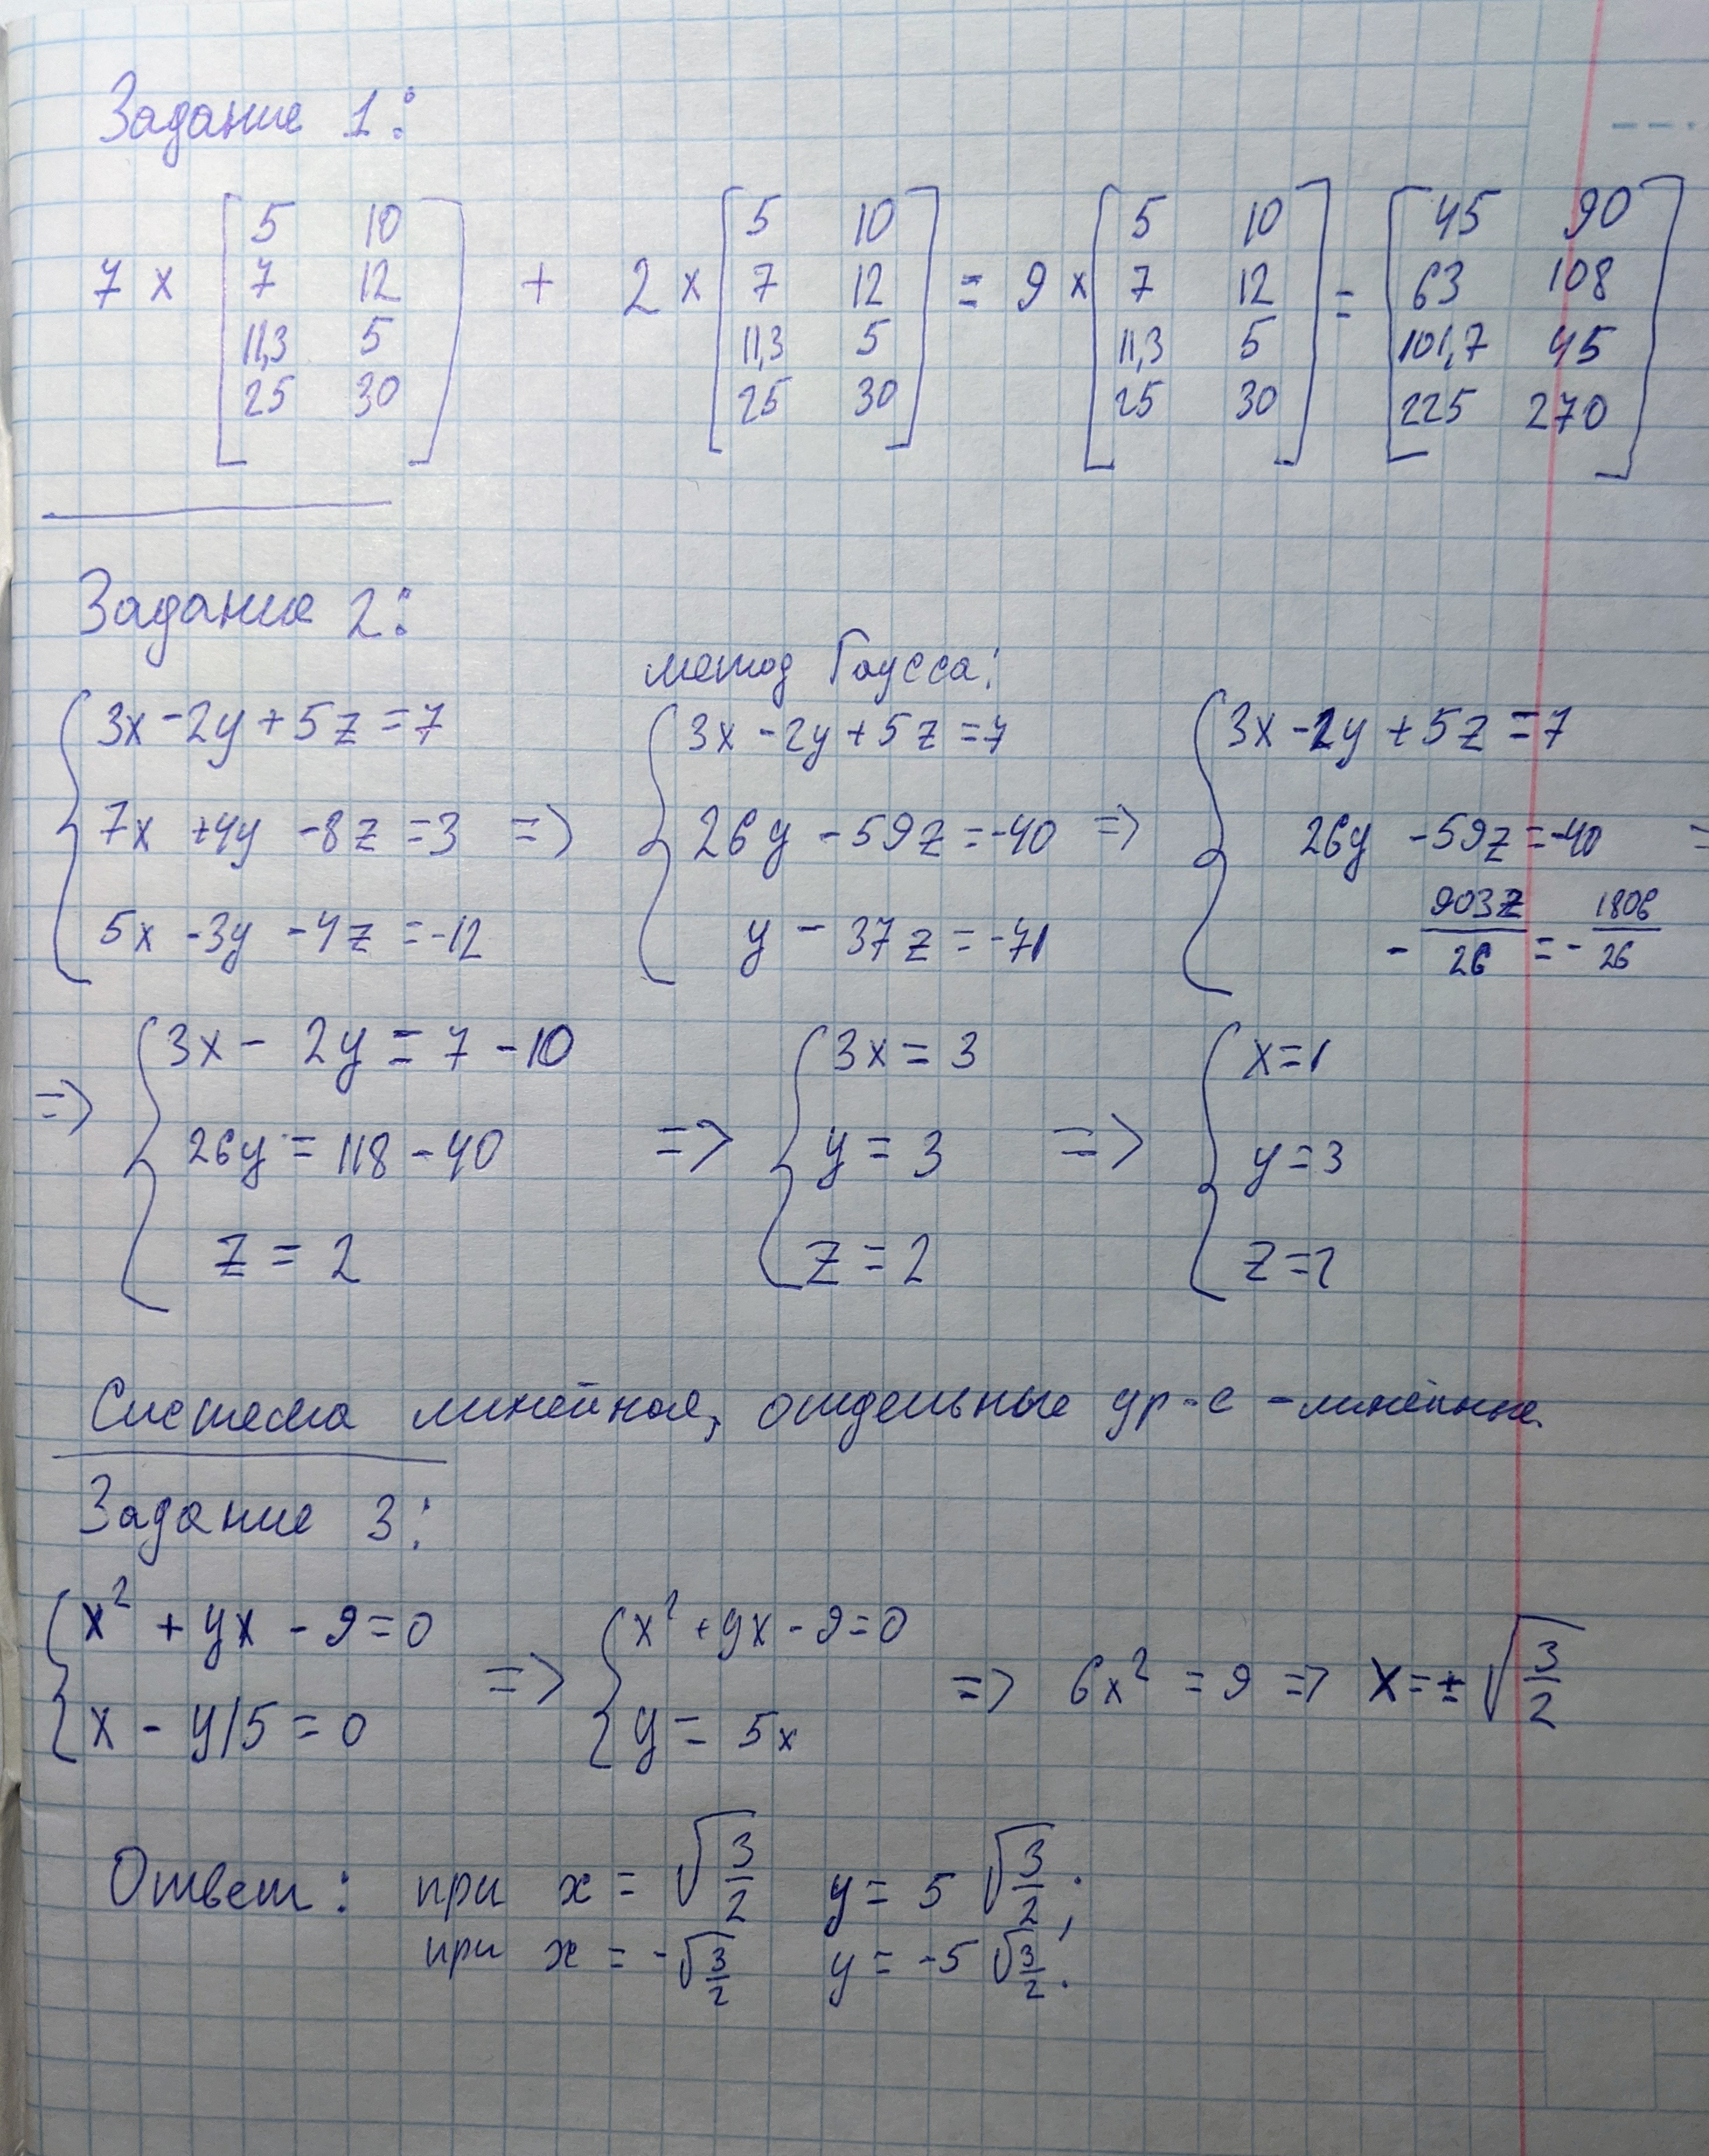 Задание 1:
7 × [5 10; 7 12; 11,3 5; 25 30] + 2 × [5 10; 7 12; 11,3 5; 25 30] = 9 × [5 10; 7 12; 11,3 5; 25 30] = [45 90; 63 108; 101,7 45; 225 270]
Задание 2:
метод Гаусса:
{ 3x - 2y + 5z = 7 { 3x - 2y + 5z = 7 { 3x - 2y + 5z = 7
7x + 4y - 8z = 3 => 26y - 59z = -40 => 26y - 59z = -40 =
5x - 3y - 4z = -12 y - 37z = -71 - 903z/26 = - 1806/26
{ 3x - 2y = 7 - 10 { 3x = 3 { x = 1
=> 26y = 118 - 40 => y = 3 => y = 3
z = 2 z = 2 z = 2
Система линейная, отдельные ур-е - линейные.
Задание 3:
{ x² + yx - 9 = 0 { x² + yx - 9 = 0
=> => 6x² = 9 => x = ± √(3/2)
x - y/5 = 0 y = 5x
Ответ: при x = √(3/2) y = 5 √(3/2);
при x = -√(3/2) y = -5 √(3/2).